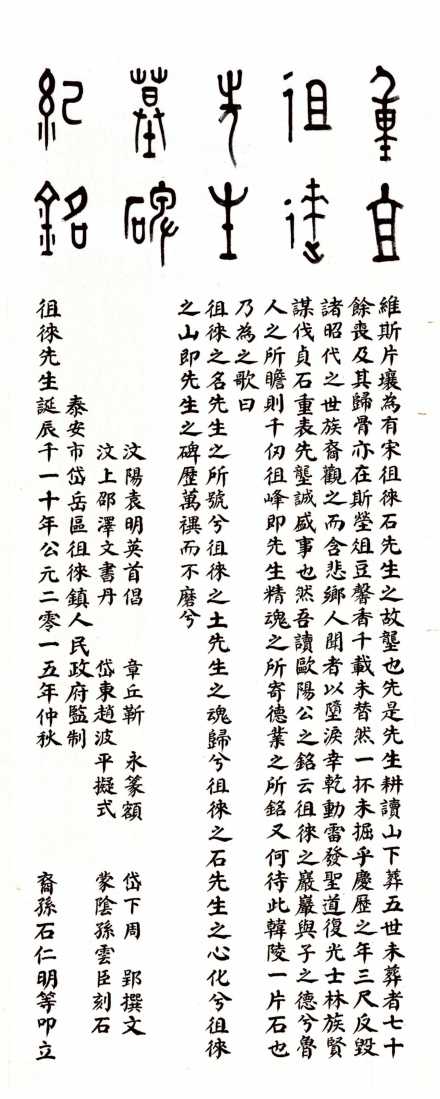 重
徂徠
先生
墓碑
紀銘
維斯片壤為有宋徂徠石先生之故壟也先是先生耕讀山下葬五世未葬者七十
餘喪及其歸骨亦在斯塋俎豆馨香千載未替然一抔未掘乎慶歷之年三尺反毀
諸昭代之世族裔觀之而含悲鄉人聞者以墮淚幸乾動雷發聖道復光士林族賢
謀伐貞石重表先壟誠盛事也然吾讀歐陽公之銘云徂徠之巖巖與子之德兮魯
人之所瞻則千仞徂峰即先生精魂之所寄德業之所銘又何待此韓陵一片石也
乃為之歌曰
徂徠之名先生之所號兮徂徠之土先生之魂歸兮徂徠之石先生之心化兮徂徠
之山即先生之碑歷萬禩而不磨兮
汶陽袁明英首倡 章丘靳 永篆額 岱下周 郢撰文
汶上邵澤文書丹 岱東趙波平擬式 蒙陰孫雲臣刻石
泰安市岱岳區徂徠鎮人民政府監制
徂徠先生誕辰千一十年公元二零一五年仲秋 裔孫石仁明等叩立